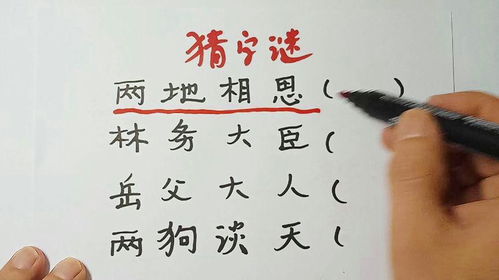 猜字谜
两地相思( )
林务大臣(
岳父大人(
两狗谈天(